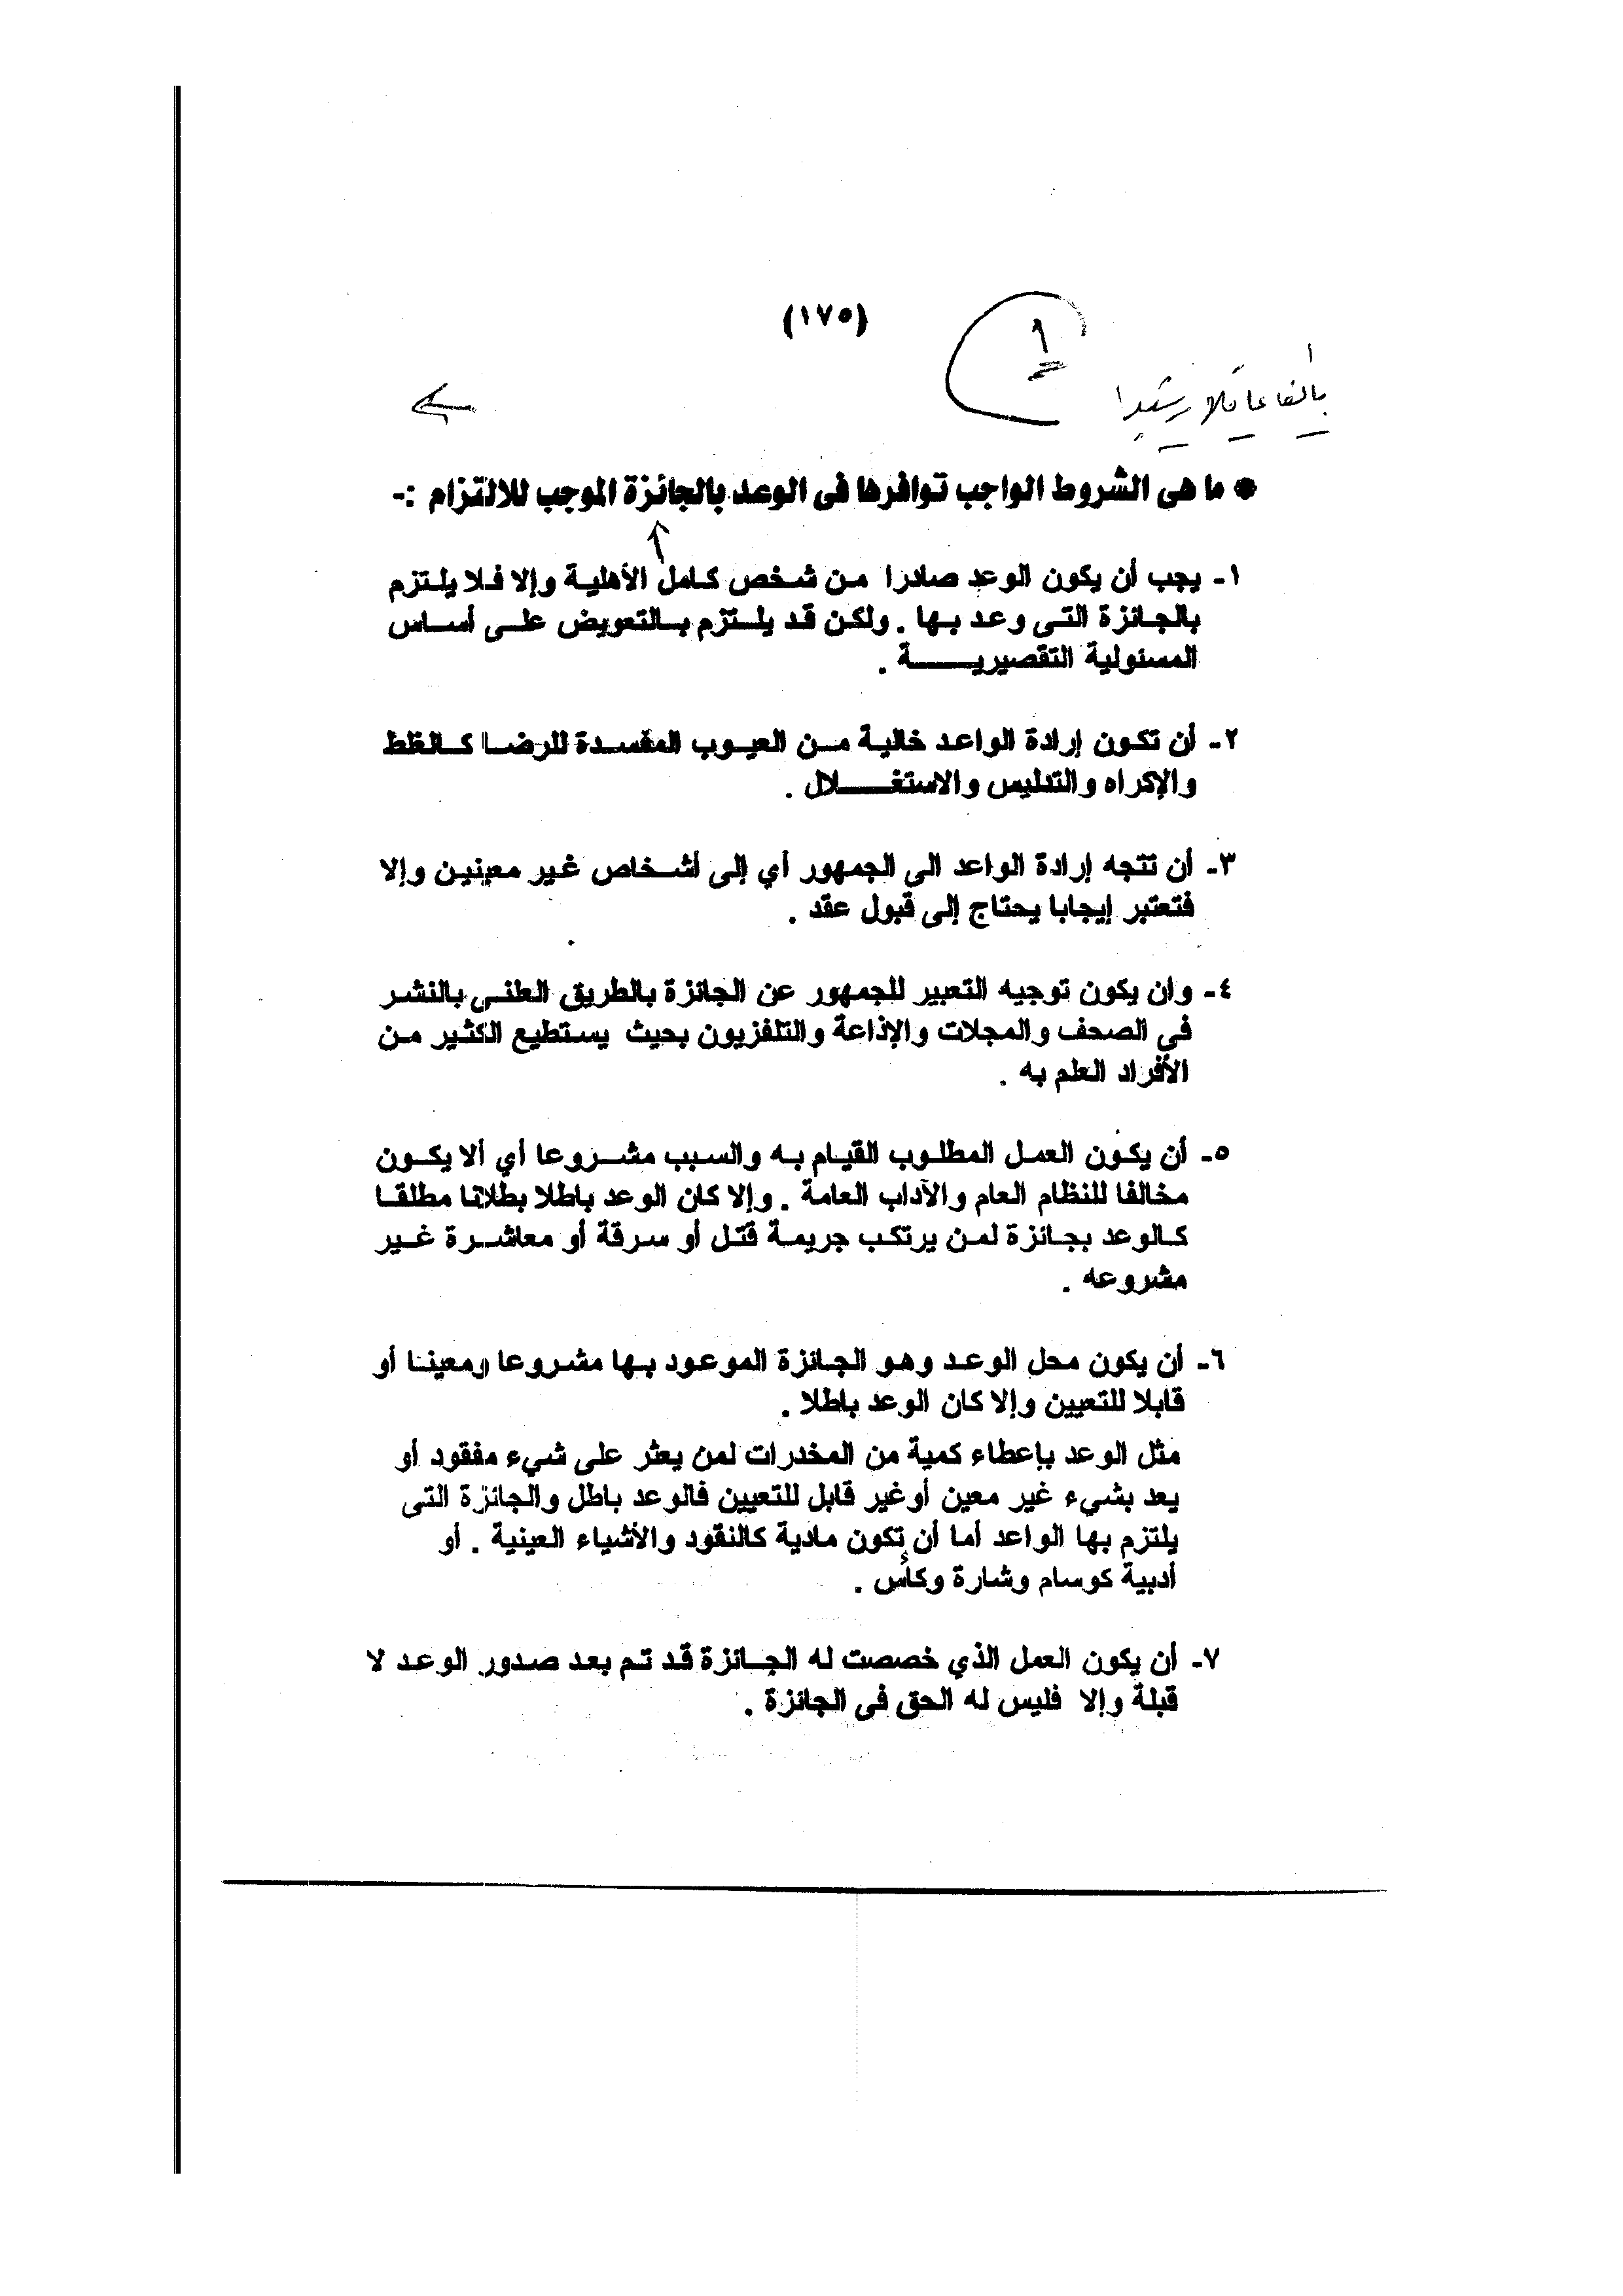 (١٧٥)
١
بالغا عاقلا رشيدا
* ما هى الشروط الواجب توافرها فى الوعد بالجائزة الموجب للالتزام :-
١- يجب أن يكون الوعد صادرا من شخص كامل الأهلية وإلا فلا يلتزم
بالجائزة التى وعد بها . ولكن قد يلتزم بالتعويض على أساس
المسئولية التقصيرية .
٢- أن تكون إرادة الواعد خالية من العيوب المفسدة للرضا كالغلط
والإكراه والتدليس والاستغلال .
٣- أن تتجه إرادة الواعد الى الجمهور أي إلى أشخاص غير معينين وإلا
فتعتبر إيجابا يحتاج إلى قبول عقد .
٤- وان يكون توجيه التعبير للجمهور عن الجائزة بالطريق العلني بالنشر
فى الصحف والمجلات والإذاعة والتلفزيون بحيث يستطيع الكثير من
الأفراد العلم به .
٥- أن يكون العمل المطلوب القيام به والسبب مشروعا أي ألا يكون
مخالفا للنظام العام والآداب العامة . وإلا كان الوعد باطلا بطلانا مطلقا
كالوعد بجائزة لمن يرتكب جريمة قتل أو سرقة أو معاشرة غير
مشروعه .
٦- أن يكون محل الوعد وهو الجائزة الموعود بها مشروعا ومعينا أو
قابلا للتعيين وإلا كان الوعد باطلا .
مثل الوعد بإعطاء كمية من المخدرات لمن يعثر على شيء مفقود أو
يعد بشيء غير معين أوغير قابل للتعيين فالوعد باطل والجائزة التى
يلتزم بها الواعد أما أن تكون مادية كالنقود والأشياء العينية . أو
أدبية كوسام وشارة وكأس .
٧- أن يكون العمل الذي خصصت له الجائزة قد تم بعد صدور الوعد لا
قبلة وإلا فليس له الحق فى الجائزة .